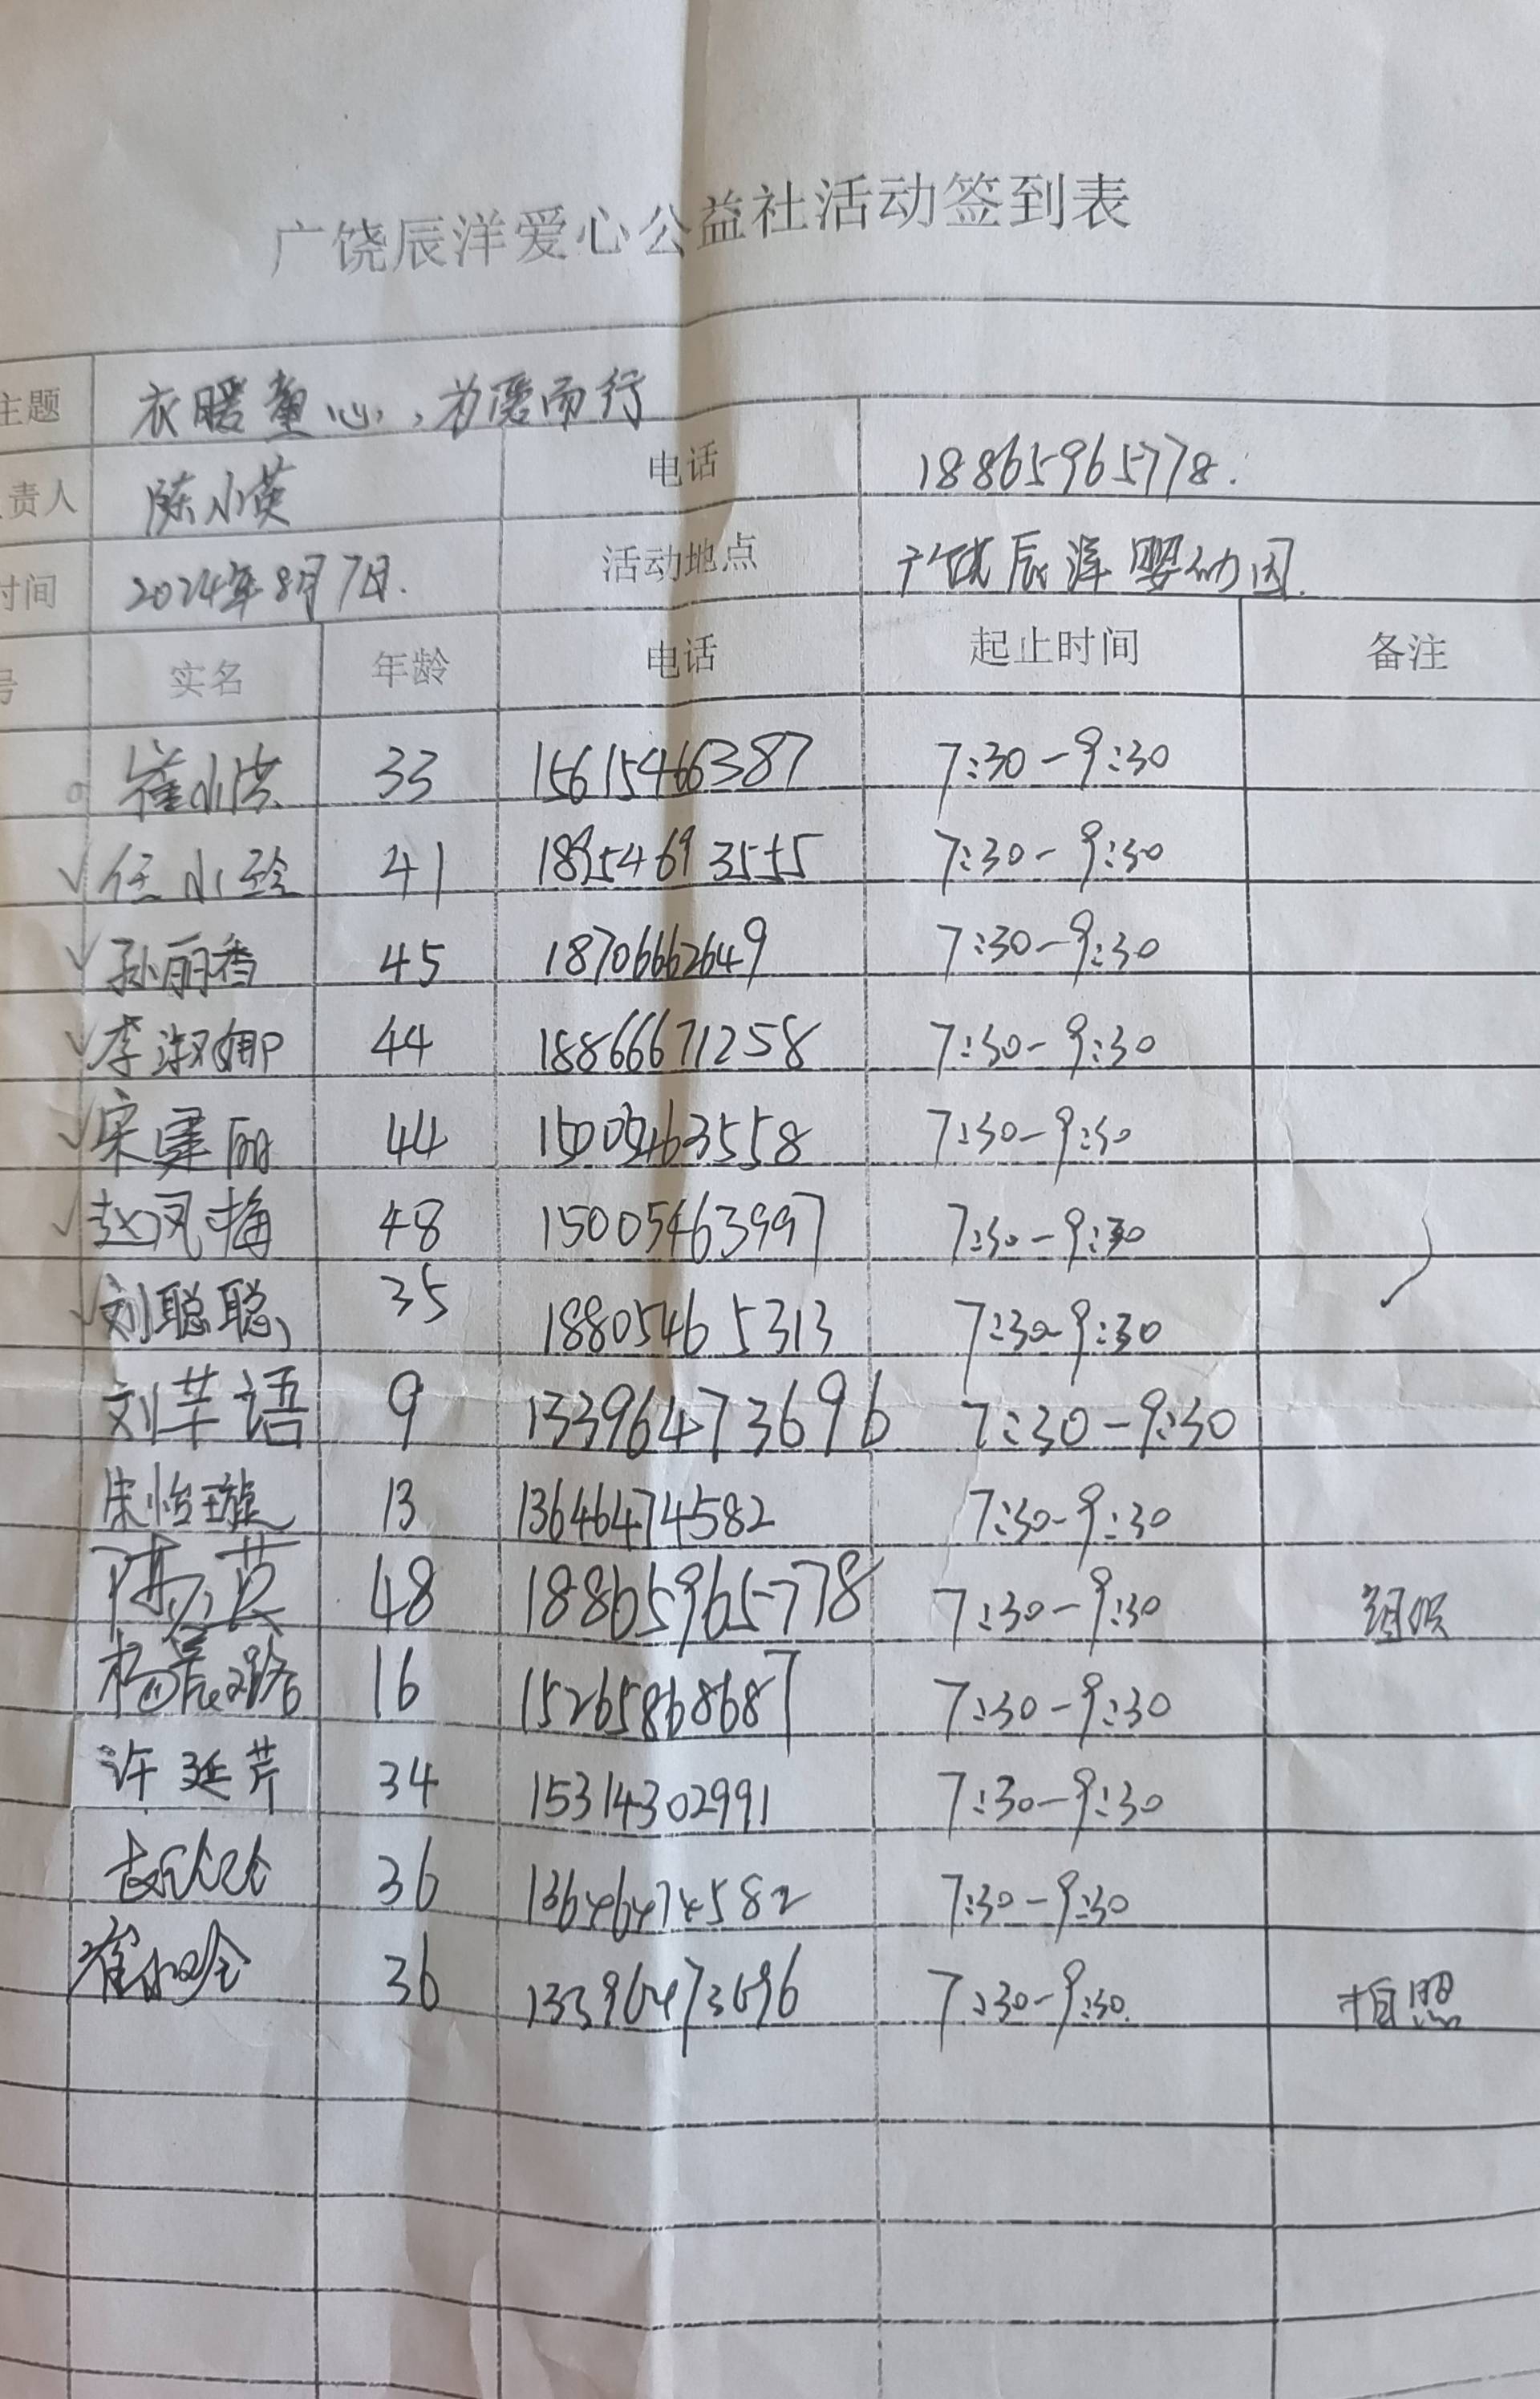 广饶辰洋爱心公益社活动签到表
主题 衣暖童心,为爱而行
责人 陈小英 电话 18865965778.
时间 2024年8月7日. 活动地点 广饶辰洋婴幼园.
号 实名 年龄 电话 起止时间 备注
崔小洪 33 15615466387 7:30-9:30
✓ 任小玲 41 18954693555 7:30-9:30
✓ 孙丽香 45 18706662649 7:30-9:30
✓ 李淑娜 44 18866671258 7:30-9:30
✓ 宋建丽 44 15005463558 7:30-9:30
✓ 赵凤梅 48 15005463997 7:30-9:30
✓ 刘聪聪 35 18805465313 7:30-9:30
刘芊语 9 13396473696 7:30-9:30
宋怡璇 13 13646474582 7:30-9:30
陈小英 48 18865965778 7:30-9:30 组织
杨晨璐 16 15265868687 7:30-9:30
许延芹 34 15314302991 7:30-9:30
36 13646474582 7:30-9:30
崔 36 13396473696 7:30-9:30. 拍照